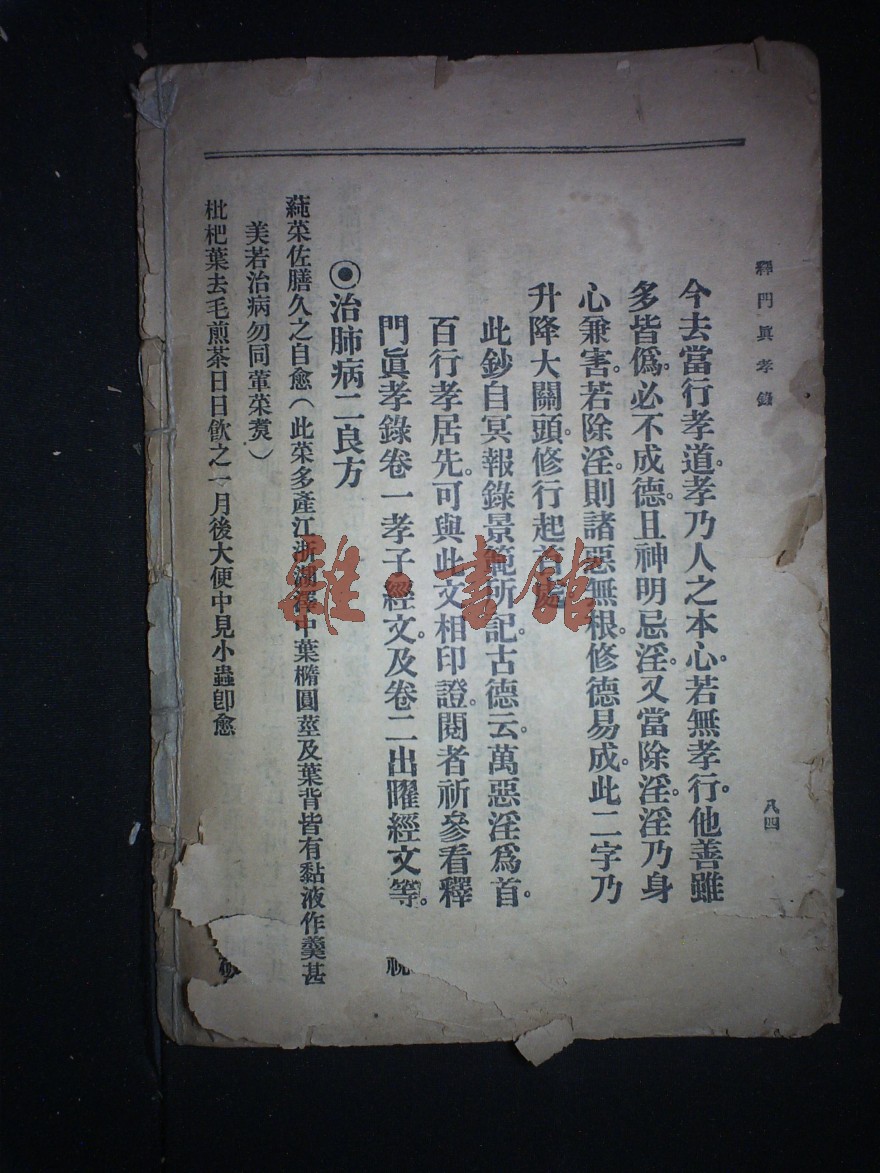 釋門眞孝錄
八四
今去當行孝道。孝乃人之本心。若無孝行。他善雖
多皆僞。必不成德。且神明忌淫。又當除淫。淫乃身
心兼害。若除淫。則諸惡無根。修德易成。此二字乃
升降大關頭。修行起首處
此鈔自冥報錄景範所記。古德云。萬惡淫爲首。
百行孝居先。可與此文相印證。閱者祈參看釋
門眞孝錄卷一孝子經文。及卷二出曜經文等。
◉治肺病二良方
蒓菜佐膳久之自愈（此菜多產江浙湖澤中葉橢圓莖及葉背皆有黏液作羹甚
美若治病勿同葷菜煑）
枇杷葉去毛煎茶日日飮之一月後大便中見小蟲卽愈
雜·書館